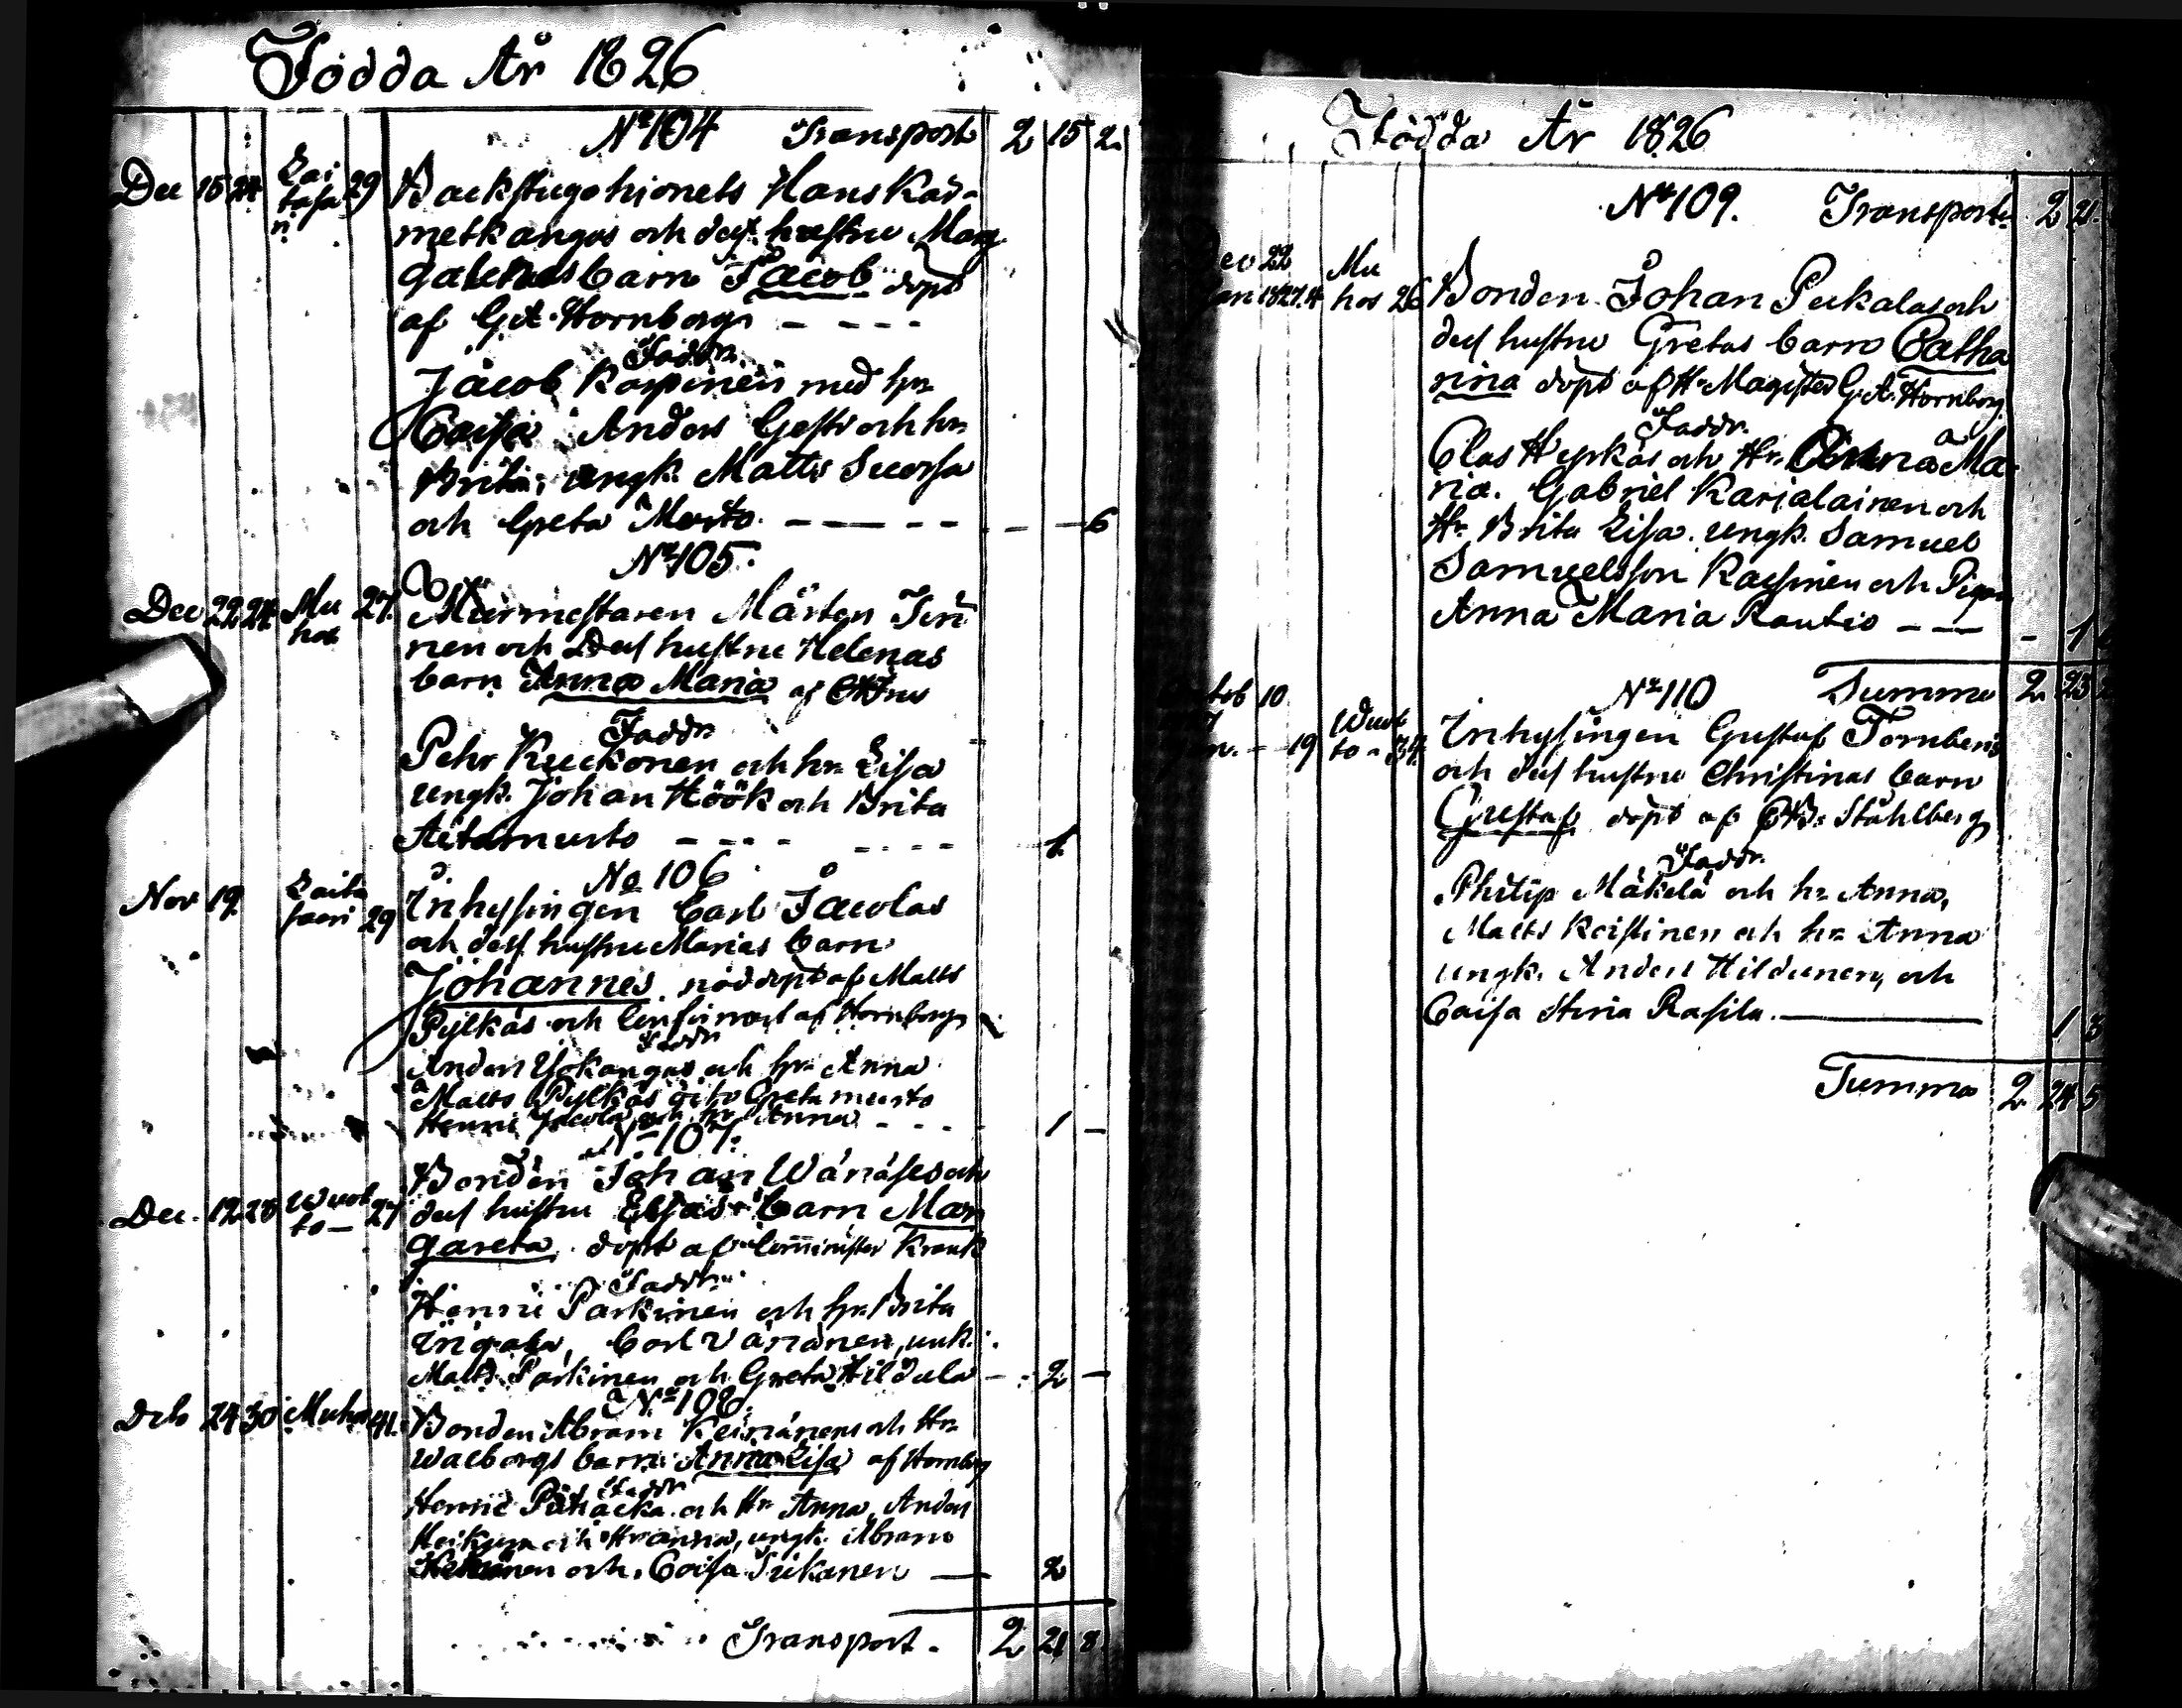 Födda År 1826
No 104 Transport 2 15 2.
Dec 15 24 Lai 29 Backstugohionets Hans Kär-
tasa metkangas och dess hustru Marg
n galenas barn Jacob döpt
af G.A. Hornborg - - - -
Faddr.
Jacob Karpinen med hr
Caisa Anders Gesti och hr
Brita, ungk. Matts Suorsa
och Greta Mursto. - - - - 6
No 105.
Dec 22 24 Mu 27. Murmestaren Mårten
hos nen och Dess hustru Helenas
barn Anna Maria af
Faddr
Pehr Kuckonen och hr Lisa
ungk. Johan Höök och Brita
Aitamurto - - - - 1.
No 106
Nov 19. Laita 29 Inhysingen Carl Jacolas
saari och dess hustru Marias barn
Johannes. nöddöpt af Matts
Pylkäs och Confirmerad af Hornborg
Faddr
Anders Yokangas och hr Anna
Matts Pylkäs dito Greta mursto
Henric Jacola och hr Anna - - - 1 -
No 107.
Bonden Johan Wänäses och
Dec. 12 28 Wuol 27 dess hustru Elsas barn Mar
to- gareta. döpt af Comminister Krank
Faddr.
Henric Parkinen och hr Brita
Carl Väränen, unk.
Matts Parkinen och Greta Hildula - 2 -
No 108.
Deb 24 30 Muhos 41. Bonden Abram Keinänens och Hr
Walborgs barn Anna Lisa af Hornborg
Faddr
Henric och Hr Anna, Anders
och Hr anna, ungk. Abram
och Caisa Tikanen — 2
Transport - 2 21 8
Födda År 1826
No 109. Transport. 2 21.
Dec 22 Mu
Jan 1827.4 hos 26 Bonden Johan Pekalas och
dess hustru Gretas barn Catha
rina döpt af Hr Magister G.A. Hornborg
Faddr.
Clas Hyrkäs och Hr Anna Ma-
ria. Gabriel Karjalainen och
Hr Brita Lisa. ungk. Samuel
Samuelsson Kaesinen och Pigan
Anna Maria Rautio - — - 1
No 110 Summa 2. 23
10 Wuol
19 to- 34. Inhysingen Gustaf Tornbergs
och dess hustru Christinas barn
Gustaf döpt af Ståhlberg
Faddr.
Philip Mäkelä och hr Anna,
Matts Keistinen och hr Anna
ungk. Anders Hildunen, och
Caisa Stina Rasila. — 1 3
Summa 2. 24 5